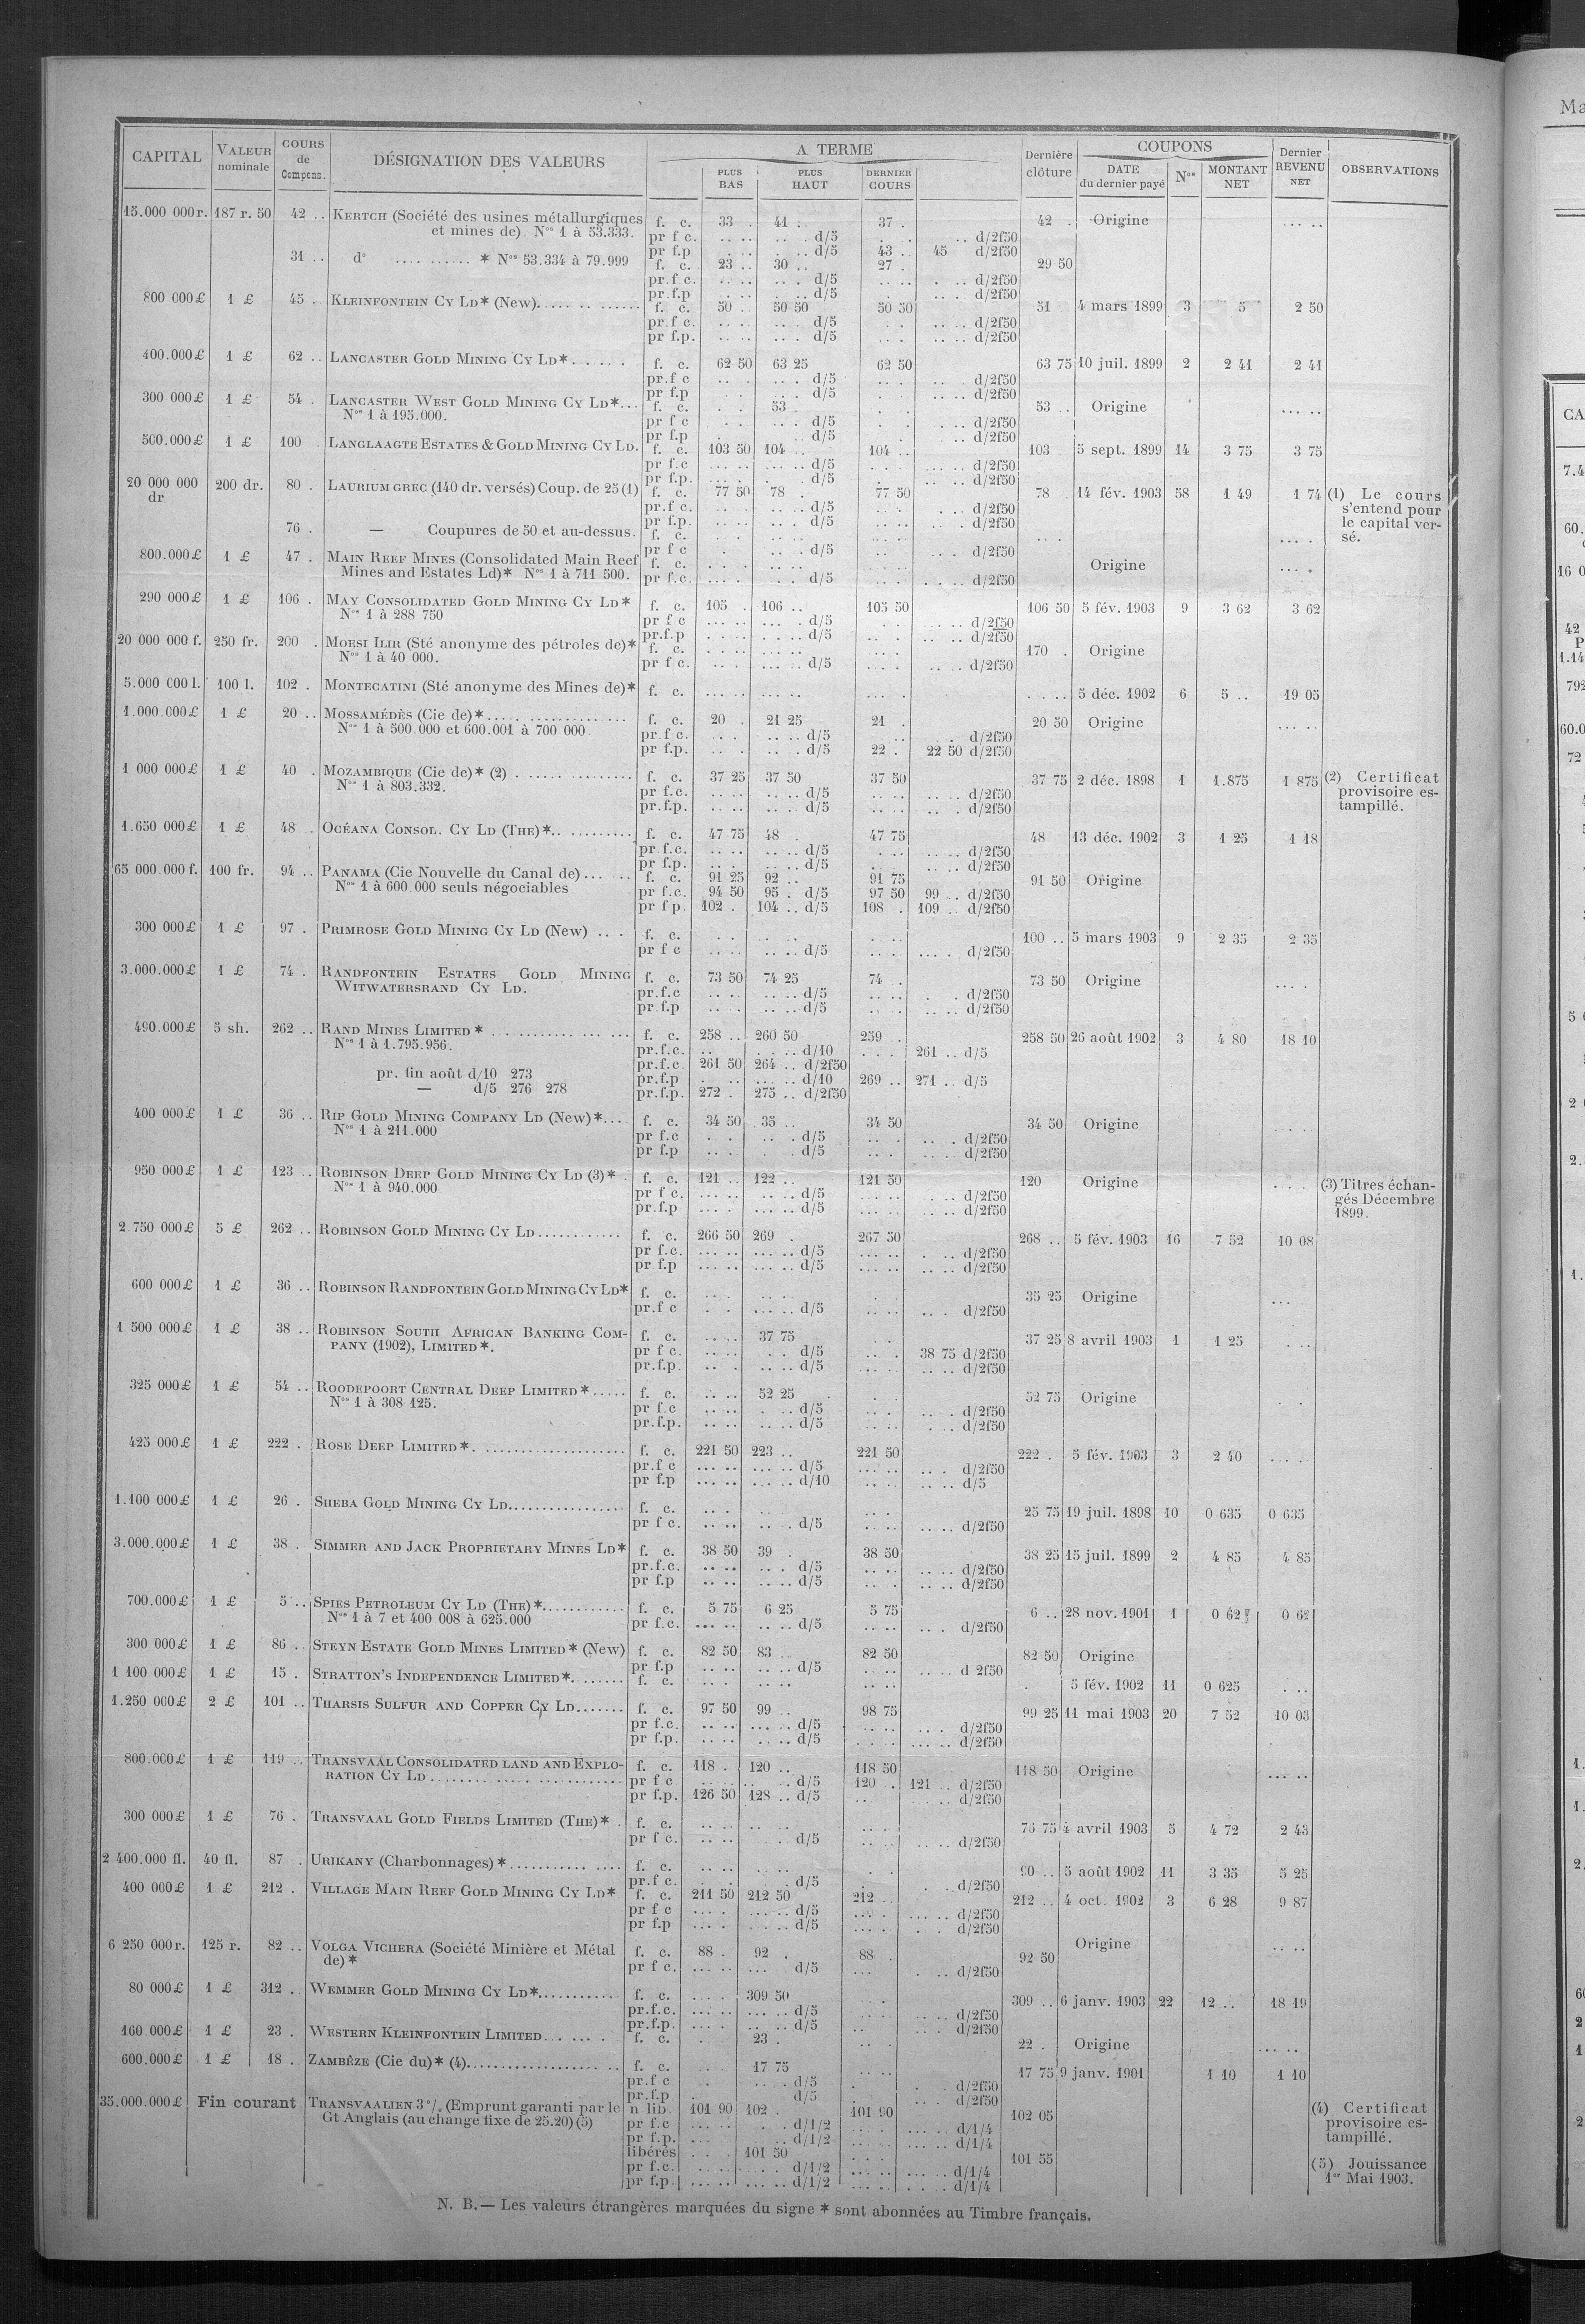 CAPITAL | VALEUR nominale | COURS de Compens. | DÉSIGNATION DES VALEURS | A TERME | PLUS BAS | PLUS HAUT | DERNIER COURS | Dernière clôture | COUPONS | DATE du dernier payé | Nos | MONTANT NET | Dernier REVENU NET | OBSERVATIONS
15.000 000 r. 187 r. 50 42 .. KERTCH (Société des usines métallurgiques f. c. 33 . 41 .. 37 . 42 . Origine ... ..
et mines de). Nos 1 à 53.333. pr f c. .. .. .. . d/5 . . .. d/2f50
pr f.p . .. . .. d/5 43 .. 45 d/2f50
31 .. do .... .......... * Nos 53.334 à 79.999 f. c. 23 .. 30 .. 27 . 29 50
pr.f c. .. .. .. . d/5 .. .. . .. d/2f50
pr.f.p . .. d/5 . ... d/2f50
800 000 £ 1 £ 45 . KLEINFONTEIN CY LD* (New)..... .. ...... f. c. 50 . 50 50 50 50 51 4 mars 1899 3 5 2 50
pr.f c. .. .. .. . d/5 . . .. .. d/2f50
pr f.p. .. .. .. . d/5 . . .. .. d/2f50
400.000 £ 1 £ 62 .. LANCASTER GOLD MINING CY LD*...... . f. c. 62 50 63 25 62 50 63 75 10 juil. 1899 2 2 41 2 41
pr.f c .. . .. . d/5 .. . .. . d/2f50
pr f.p . . .. d/5 . .. .. d/2f50
300 000 £ 1 £ 54 . LANCASTER WEST GOLD MINING CY LD*... f. c. . . 53 . . 53 .. Origine ... ..
Nos 1 à 195.000. pr f c . . .. . d/5 . . .. d/2f50
pr f.p . d/5 . . .. d/2f50
500.000 £ 1 £ 100 . LANGLAAGTE ESTATES & GOLD MINING CY LD. f. c. 103 50 104 .. 104 .. 103 . 5 sept. 1899 14 3 75 3 75
pr f.c ... .. ... .. d/5 . . ... .. d/2f50
pr f.p. ... . . d/5 . .. .. d/2f50
20 000 000 dr 200 dr. 80 . LAURIUM GREC (140 dr. versés) Coup. de 25 (1) f. c. 77 50 78 . 77 50 78 . 14 fév. 1903 58 1 49 1 74 (1) Le cours
pr.f c. .. .. .. .. d/5 .. . . .. d/2f50 s'entend pour
76 . — Coupures de 50 et au-dessus. pr f.p. .. .. .. . d/5 .. .. .. . d/2f50 le capital ver-
f. c. ... . sé.
800.000 £ 1 £ 47 . MAIN REEF MINES (Consolidated Main Reef pr f c . .. . d/5 .. .. . d/2f50
Mines and Estates Ld)* Nos 1 à 711 500. f. c. . . .. .. Origine ... .
pr f.c. ... . . . d/5 .. . . .. d/2f50
290 000 £ 1 £ 106 . MAY CONSOLIDATED GOLD MINING CY LD* f. c. 105 . 106 .. 105 50 106 50 5 fév. 1903 9 3 62 3 62
Nos 1 à 288 750 pr f c ... .. ... . d/5 . . .. .. d/2f50
pr.f.p . . .. .. .. d/5 .. . .. .. d/2f50
20 000 000 f. 250 fr. 200 . MOESI ILIR (Sté anonyme des pétroles de)* f. c. . . .. ... .. 170 . Origine
Nos 1 à 40 000. pr f c. .. . ... .. d/5 ... . .. . d/2f50
5.000 000 l. 100 l. 102 . MONTECATINI (Sté anonyme des Mines de)* f. c. ... .. ... .. ... . . . .. 5 déc. 1902 6 5 .. 19 05
1.000.000 £ 1 £ 20 .. MOSSAMÉDÈS (Cie de)*..... ............... f. c. 20 . 21 25 21 . 20 50 Origine ... ..
Nos 1 à 500.000 et 600.001 à 700 000 pr.f c. . . .. .. d/5 .. . d/2f50
pr f.p. .. . .. .. d/5 22 . 22 50 d/2f50
1 000 000 £ 1 £ 40 . MOZAMBIQUE (Cie de)* (2) . ...... ......... f. c. 37 25 37 50 37 50 37 75 2 déc. 1898 1 1.875 1 875 (2) Certificat
Nos 1 à 803.332. pr f.c. .. .. .. .. d/5 .. .. .. .. d/2f50 provisoire es-
pr.f.p. .. .. .. .. d/5 .. .. .. . d/2f50 tampillé.
1.650 000 £ 1 £ 48 . OCÉANA CONSOL. CY LD (THE)*.. .......... f. c. 47 75 48 . 47 75 48 13 déc. 1902 3 1 25 1 18
pr f.c. .. .. .. .. d/5 . .. .. .. d/2f50
pr f.p. .. . .. .. d/5 . .. .. d/2f50
65 000.000 f. 100 fr. 94 .. PANAMA (Cie Nouvelle du Canal de)... .. f. c. 91 25 92 .. 91 75 91 50 Origine
Nos 1 à 600.000 seuls négociables pr f.c. 94 50 95 . d/5 97 50 99 .. d/2f50
pr f p. 102 . 104 .. d/5 108 . 109 .. d/2f50
300 000 £ 1 £ 97 . PRIMROSE GOLD MINING CY LD (New) .. . f. c. . . . . . .. 100 .. 5 mars 1903 9 2 35 2 35
pr f c .. .. .. .. d/5 .. .. ... . d/2f50
3.000.000 £ 1 £ 74 . RANDFONTEIN ESTATES GOLD MINING f. c. 73 50 74 25 74 . 73 50 Origine ... .
WITWATERSRAND CY LD. pr.f.c .. .. .. .. d/5 .. .. . . d/2f50
pr.f.p .. .. .. .. d/5 .. . .. .. d/2f50
490.000 £ 5 sh. 262 .. RAND MINES LIMITED * ... ........ ... ... f. c. 258 .. 260 50 259 . 258 50 26 août 1902 3 4 80 18 10
Nos 1 à 1.795.956. pr.f.c. .. . .. .. d/10 . . . 261 .. d/5
pr. fin août d/10 273 pr.f.c. 261 50 264 .. d/2f50
— d/5 276 278 pr.f.p . .. ... .. d/10 269 .. 271 .. d/5
pr.f.p. 272 . 275 .. d/2f50
400 000 £ 1 £ 36 .. RIP GOLD MINING COMPANY LD (New)*... f. c. 34 50 35 .. 34 50 34 50 Origine
Nos 1 à 211.000 pr f.c . . .. . d/5 .. . .. . d/2f50
pr f.p .. . . . d/5 .. . .. .. d/2f50
950 000 £ 1 £ 123 .. ROBINSON DEEP GOLD MINING CY LD (3)* . f. c. 121 .. 122 .. 121 50 120 Origine . . . (3) Titres échan-
Nos 1 à 940.000 pr f c. ... .. .. .. d/5 ... .. . .. d/2f50 gés Décembre
pr.f.p ... . ... .. d/5 ... .. .. .. d/2f50 1899.
2.750 000 £ 5 £ 262 .. ROBINSON GOLD MINING CY LD............ f. c. 266 50 269 . 267 50 268 .. 5 fév. 1903 16 7 52 10 08
pr f.c. ... .. ... .. d/5 ... .. . .. d/2f50
pr f.p ... .. ... .. d/5 ... .. .. .. d/2f50
600 000 £ 1 £ 36 .. ROBINSON RANDFONTEIN GOLD MINING CY LD* f. c. .. . .. .. 35 25 Origine ...
pr.f c . . ... .. d/5 .. .. .. . d/2f50
1 500 000 £ 1 £ 38 .. ROBINSON SOUTH AFRICAN BANKING COM- f. c. .. . 37 75 . . 37 25 8 avril 1903 1 1 25 . ..
PANY (1902), LIMITED*. pr f c. .. .. . . d/5 .. . 38 75 d/2f50
pr.f.p. .. . .. .. d/5 .. .. d/2f50
325 000 £ 1 £ 54 .. ROODEPOORT CENTRAL DEEP LIMITED*..... f. c. .. .. 52 25 . . 52 75 Origine
Nos 1 à 308 125. pr f.c .. .. . .. d/5 .. . .. . d/2f50
pr.f.p. .. .. .. .. d/5 .. . . .. d/2f50
425 000 £ 1 £ 222 . ROSE DEEP LIMITED*. .................... f. c. 221 50 223 .. 221 50 222 . 5 fév. 1903 3 2 40 ... .
pr.f c ... .. ... .. d/5 ... .. .. . d/2f50
pr f.p ... .. ... .. d/10 ... .. .. .. d/5
1.100 000 £ 1 £ 26 . SHEBA GOLD MINING CY LD................ f. c. .. . .. . 25 75 19 juil. 1898 10 0 635 0 635
pr f c. .. .. .. . d/5 .. .. .. .. d/2f50
3.000.000 £ 1 £ 38 . SIMMER AND JACK PROPRIETARY MINES LD* f. c. 38 50 39 . 38 50 38 25 15 juil. 1899 2 4 85 4 85
pr.f.c. .. .. .. . d/5 .. .. .. .. d/2f50
pr f.p .. .. .. .. d/5 .. . .. .. d/2f50
700.000 £ 1 £ 5 .. SPIES PETROLEUM CY LD (THE)*............ f. c. 5 75 6 25 5 75 6 .. 28 nov. 1901 1 0 62 0 62
Nos 1 à 7 et 400 008 à 625.000 pr f.c. ... .. .. .. d/5 .. .. .. . d/2f50
300 000 £ 1 £ 86 .. STEYN ESTATE GOLD MINES LIMITED * (New) f. c. 82 50 83 .. 82 50 82 50 Origine
pr f.p .. .. .. .. d/5 .. .. .. .. d 2f50
1 100 000 £ 1 £ 15 . STRATTON'S INDEPENDENCE LIMITED*....... f. c. .. . .. .. .. .. . 5 fév. 1902 11 0 625 . ..
1.250 000 £ 2 £ 101 .. THARSIS SULFUR AND COPPER CY LD....... f. c. 97 50 99 .. 98 75 99 25 11 mai 1903 20 7 52 10 03
pr f.c. .. .. ... .. d/5 .. .. .. . d/2f50
pr f.p. .. .. .. . d/5 .. .. .. d/2f50
800.000 £ 1 £ 119 .. TRANSVAAL CONSOLIDATED LAND AND EXPLO- f. c. 118 . 120 .. 118 50 118 50 Origine ... ..
RATION CY LD ...................... pr f c .. .. .. . d/5 120 . 121 .. d/2f50
pr f.p. 126 50 128 .. d/5 .. . .. .. d/2f50
300 000 £ 1 £ 76 . TRANSVAAL GOLD FIELDS LIMITED (THE)* . f. c. .. .. .. .. .. . 76 75 4 avril 1903 5 4 72 2 43
pr f c. .. .. . d/5 .. .. .. .. d/2f50
2 400.000 fl. 40 fl. 87 . URIKANY (Charbonnages) *........... .... f. c. .. .. .. .. . . 90 .. 5 août 1902 11 3 35 5 25
pr.f c. . . . d/5 . . .. d/2f50
400 000 £ 1 £ 212 . VILLAGE MAIN REEF GOLD MINING CY LD* f. c. 211 50 212 50 212 .. 212 .. 4 oct. 1902 3 6 28 9 87
pr f c ... . ... .. d/5 ... . ... .. d/2f50
pr f.p ... . . .. d/5 ... . . .. d/2f50
6 250 000 r. 125 r. 82 .. VOLGA VICHERA (Société Minière et Métal f. c. 88 . 92 . 88 . 92 50 Origine .. ..
de) * pr f c. ... .. ... d/5 . .. d/2f50
80 000 £ 1 £ 312 .. WEMMER GOLD MINING CY LD*........... f. c. . . . 309 50 . . 309 .. 6 janv. 1903 22 12 .. 18 19
pr.f.c. ... .. ... .. d/5 .. .. d/2f50
pr.f.p. ... . ... .. d/5 .. .. . d/2f50
160.000 £ 1 £ 23 . WESTERN KLEINFONTEIN LIMITED... ... . f. c. . 23 . .. . 22 . Origine ... ..
600.000 £ 1 £ 18 .. ZAMBÈZE (Cie du)* (4)................... .. f. c. .. 17 75 .. .. 17 75 9 janv. 1901 1 10 1 10
pr.f c .. .. . d/5 . . . d/2f50
pr.f.p . d/5 .. . d/2f50
35.000.000 £ Fin courant TRANSVAALIEN 3 % (Emprunt garanti par le n lib. 101 90 102 . 101 90 102 05 (4) Certificat
Gt Anglais (au change fixe de 25.20) (5) pr f.c ... .. . . d/1/2 ... . ... .. d/1/4 provisoire es-
pr f.p. ... .. d/1/2 ... . ... .. d/1/4 tampillé.
libérés . . . 101 50 101 55
pr f.c. . .. .. . . d/1/2 ... .. ... .. d/1/4 (5) Jouissance
pr f.p. ... .. ... .. d/1/2 ... .. . . . d/1/4 1er Mai 1903.
N. B.— Les valeurs étrangères marquées du signe * sont abonnées au Timbre français.